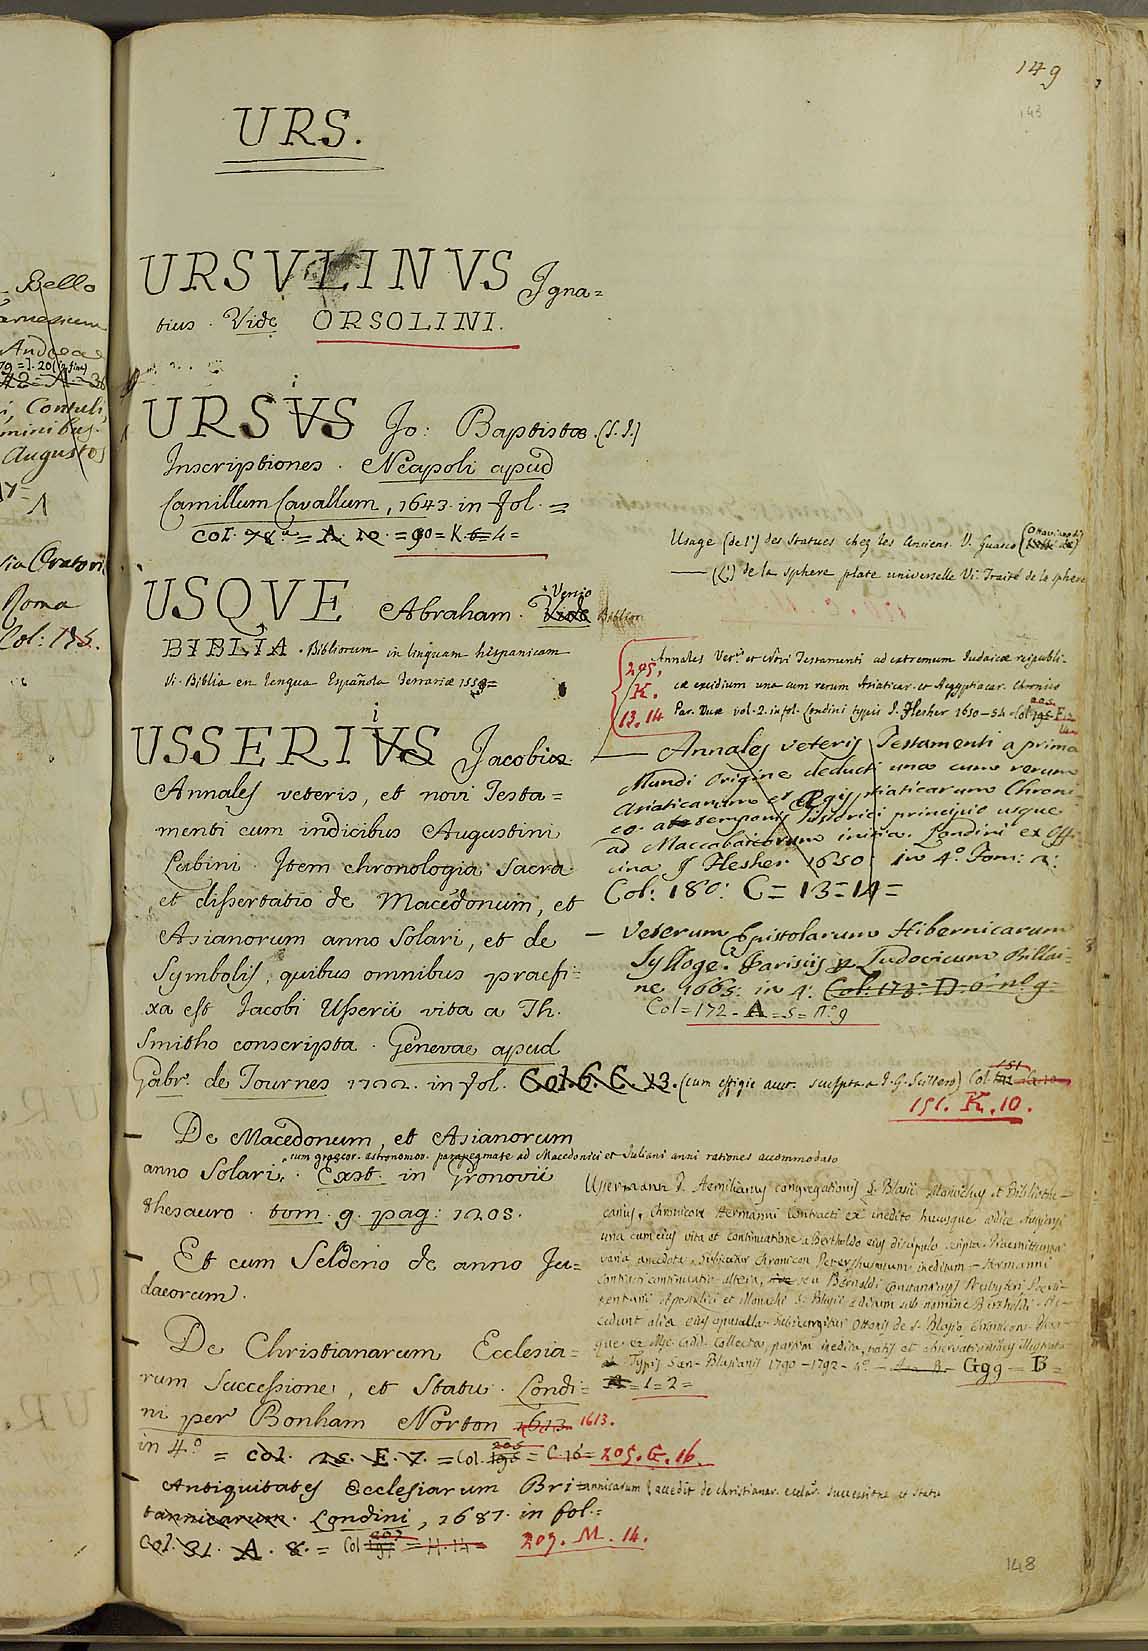 149
143
URS.
URSVLINVS Igna=
tius. Vide ORSOLINI.
URSVS i Jo: Baptistæ. (S.J.)
Inscriptiones. Neapoli apud
Camillum Cavallum, 1643. in fol. =
Col. 78. = A. 10. = 90 = K. 6 = 4 =
USQVE Abraham. Vide Versio Biblior.
BIBLIA. Bibliorum in linguam hispanicam
Vi. Biblia en lengua Española Ferrariæ 1553 =
USSERIVS i Jacobi
Annales veteris, et novi Testa=
menti cum indicibus Augustini
Lubini. Item chronologia Sacra
et dissertatio de Macedonum, et
Asianorum anno Solari, et de
Symbolis, quibus omnibus præfi=
xa est Jacobi Usserii vita a Th.
Smitho conscripta. Genevæ apud
Gabr. de Tournes 1722. in fol. Col. 6. C. 13. (cum effigie auct. sculpta a J. G. Seillero) Col. 151
151. K. 10.
— De Macedonum, et Asianorum
cum græcor. astronomor. parapegmate ad Macedonici et Juliani anni rationes accommodato
anno Solari. Exst. in Gronovii
thesauro. tom. 9. pag: 1205.
— Et cum Seldeno de anno Ju=
dæorum.
— De Christianarum Ecclesia=
rum Successione, et Statu. Londi=
ni per Bonham Norton 1613. 1613.
in 4.° = Col. 25. E. 7. = Col. 195 205 = C. 16 = 205. G. 16.
— Antiquitates Ecclesiarum Britannicarum (accedit de christianar. ecclar. successione et statu
tannicarum. Londini, 1687. in fol. =
Col. 31. A. 8. = Col. 197 = H. 14 = 207. M. 14.
Usage (de l') des Statues chez les Anciens. V. Guasco (Ottaviano di)
— (L') de la sphere plate universelle Vi. Traité de la sphere
205.
K.
13.14
Annales Vet.s et Novi Testamenti ad extremum Judaicæ reipubli-
cæ excidium una cum rerum Asiaticar. et Aegyptiacar. Chronico
Par. Duæ vol. 2. in fol. Londini typis J. Flesher 1650-54 Col. 195
— Annales veteris Testamenti a prima
Mundi origine deducti una cum rerum
Asiaticarum et Ægyptiacarum Chroni-
co. a temporis historici principio usque
ad Maccabaicorum initia. Londini ex offi
cina J. Flesher 1650 in 4.° Tom: 2:
Col: 180: C = 13 = 14 =
— Veterum Epistolarum Hibernicarum
Sylloge. Parisiis Ludovicum Billai=
ne 1665. in 4.° Col: 173. D. 6 n.° 9
Col = 172 - A = 5 = n.° 9
Ussermann P. Aemilianus congregationis S. Blasii Monachus et Bibliothe-
carius, Chronicon Hermanni Contracti ex inedito hucusque codice
una cum eius vita et continuatione a Bertholdo eius discipulo scripta. Præmittuntur
varia anecdota, subiicitur Chronicon Petershusanum ineditum — Hermanni
Contracti continuatio altera, seu Bernoldi Constantiensis Presbyteri Pœni-
tentiarii Apostolici et Monachi S. Blasii editum sub nomine Bertholdi. Ac-
cedunt alia eius opuscula. Subiungitur Ottonis de S. Blasio Chronicon.
que ex Mss. Codd. collecta, partim inedita, notis et observationibus illustrata
Typis San-Blasianis 1790-1792-4.° — Ggg = B =
A = 1 = 2 =
148
Bello
Andreæ
Consuli,
minibus
Augustos
Roma